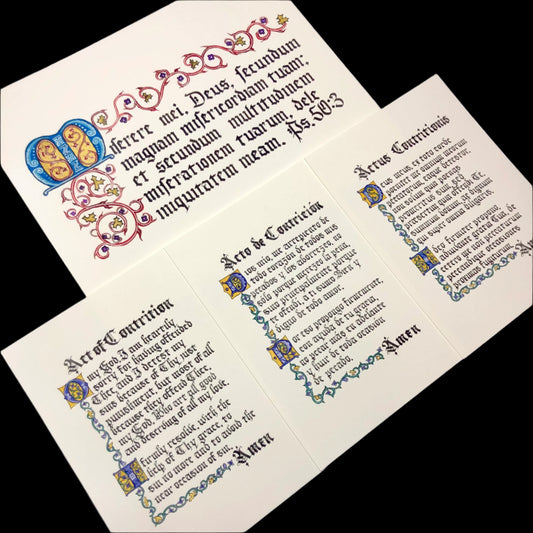 Miserere mei, Deus, secundum
magnam misericordiam tuam;
et secundum multitudinem
miserationem tuarum, dele
iniquitatem meam. Ps. 50:3
Act of Contrition
O my God, I am heartily
sorry for having offended
Thee, and I detest my
sins because of Thy just
punishment, but most of all
because they offend Thee,
my God, Who are all good
and deserving of all my love.
I firmly resolve, with the
help of Thy grace, to
sin no more and to avoid the
near occasion of sin.
Amen
Acto de Contrición
Dios mio, me arrepiento de
todo corazón de todos mis
pecados y los aborrezco, no
sólo porque merezco la pena,
sino principalmente porque
te ofendí, a ti sumo Bien y
digno de todo amor.
Por eso propongo firmemente,
con ayuda de tu gracia,
no pecar más en adelante
y huir de toda ocasión
de pecado.
Amen
Actus Contritionis
Deus meus, ex toto corde
paenitet me omnium meorum
peccatorum, eaque detestor,
non solum quia poenas
promeritus sum, sed
praesertim quia offendi Te,
summum bonum, ac dignum
qui super omnia diligaris.
Ideo firmiter propono,
adiuvante gratia Tua, de
cetero me non peccaturum
peccandique occasiones
proximas fugiturum.
Amen